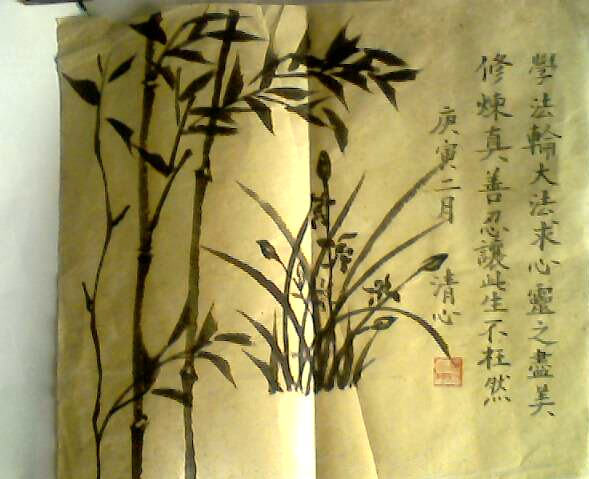 學法輪大法求心靈之盡美
修煉真善忍讓此生不枉然
庚寅二月 清心